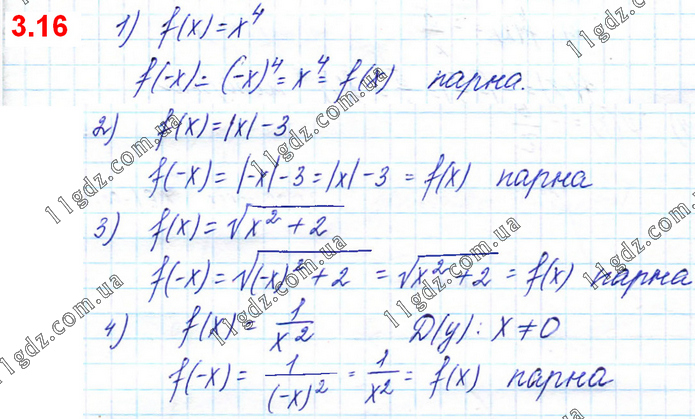 3.16
1) f(x) = x⁴
f(-x) = (-x)⁴ = x⁴ = f(x) парна.
2) f(x) = |x| - 3
f(-x) = |-x| - 3 = |x| - 3 = f(x) парна
3) f(x) = √(x² + 2)
f(-x) = √((-x)² + 2) = √(x² + 2) = f(x) парна
4) f(x) = 1/x² D(y): x ≠ 0
f(-x) = 1/(-x)² = 1/x² = f(x) парна
11gdz.com.ua
11gdz.com.ua
11gdz.com.ua
11gdz.com.ua
11gdz.com.ua
11gdz.com.ua